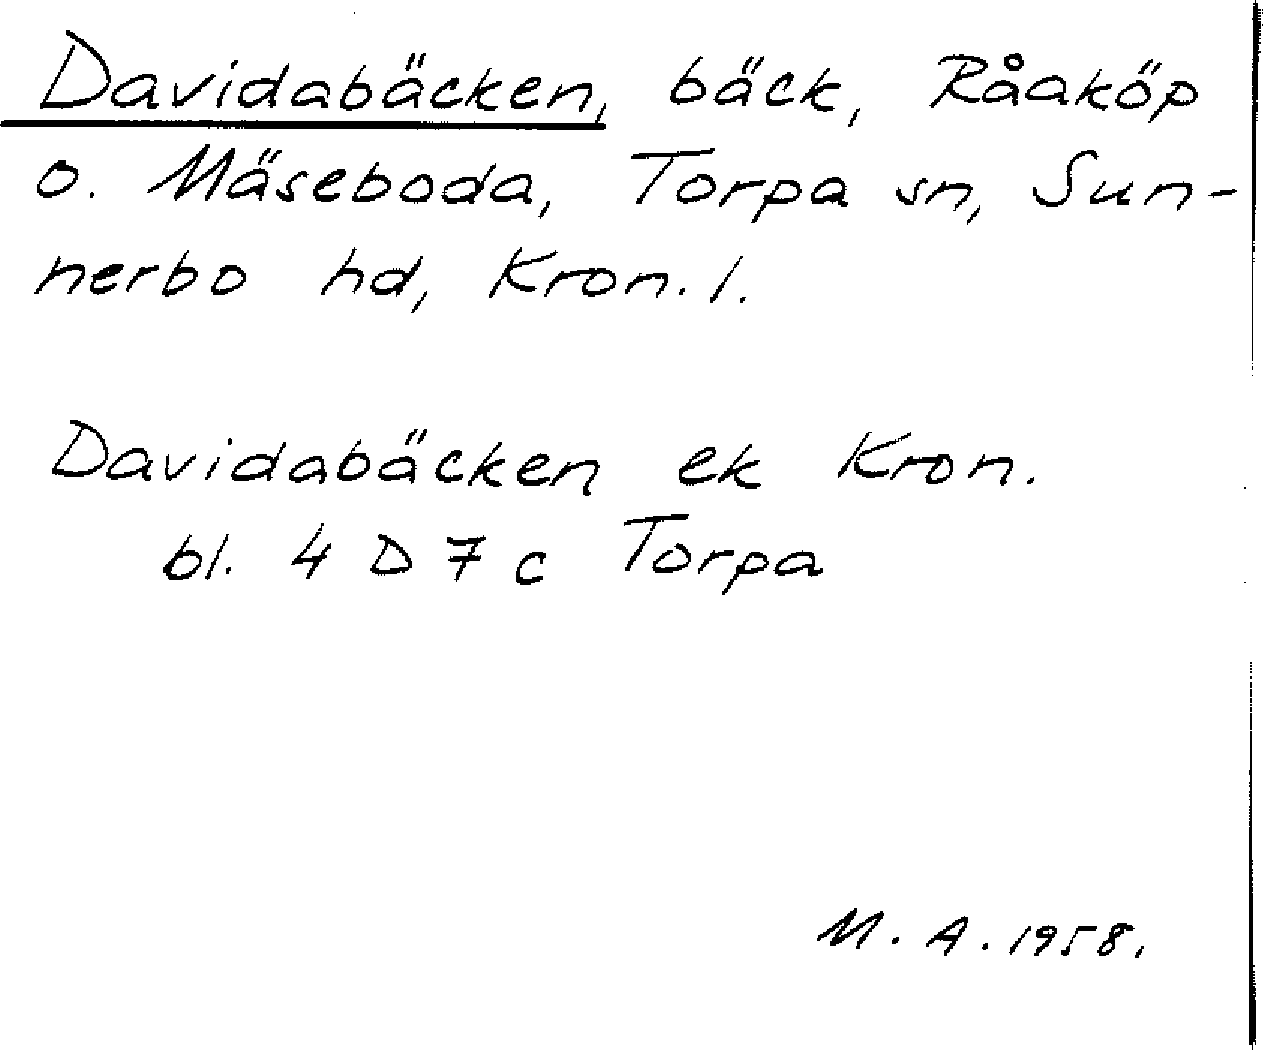 Davidabäcken, bäck, Råaköp
o. Mäseboda, Torpa sn, Sun-
nerbo hd, Kron. l.
Davidabäcken ek Kron.
bl. 4 D 7 c Torpa
M. A. 1958.